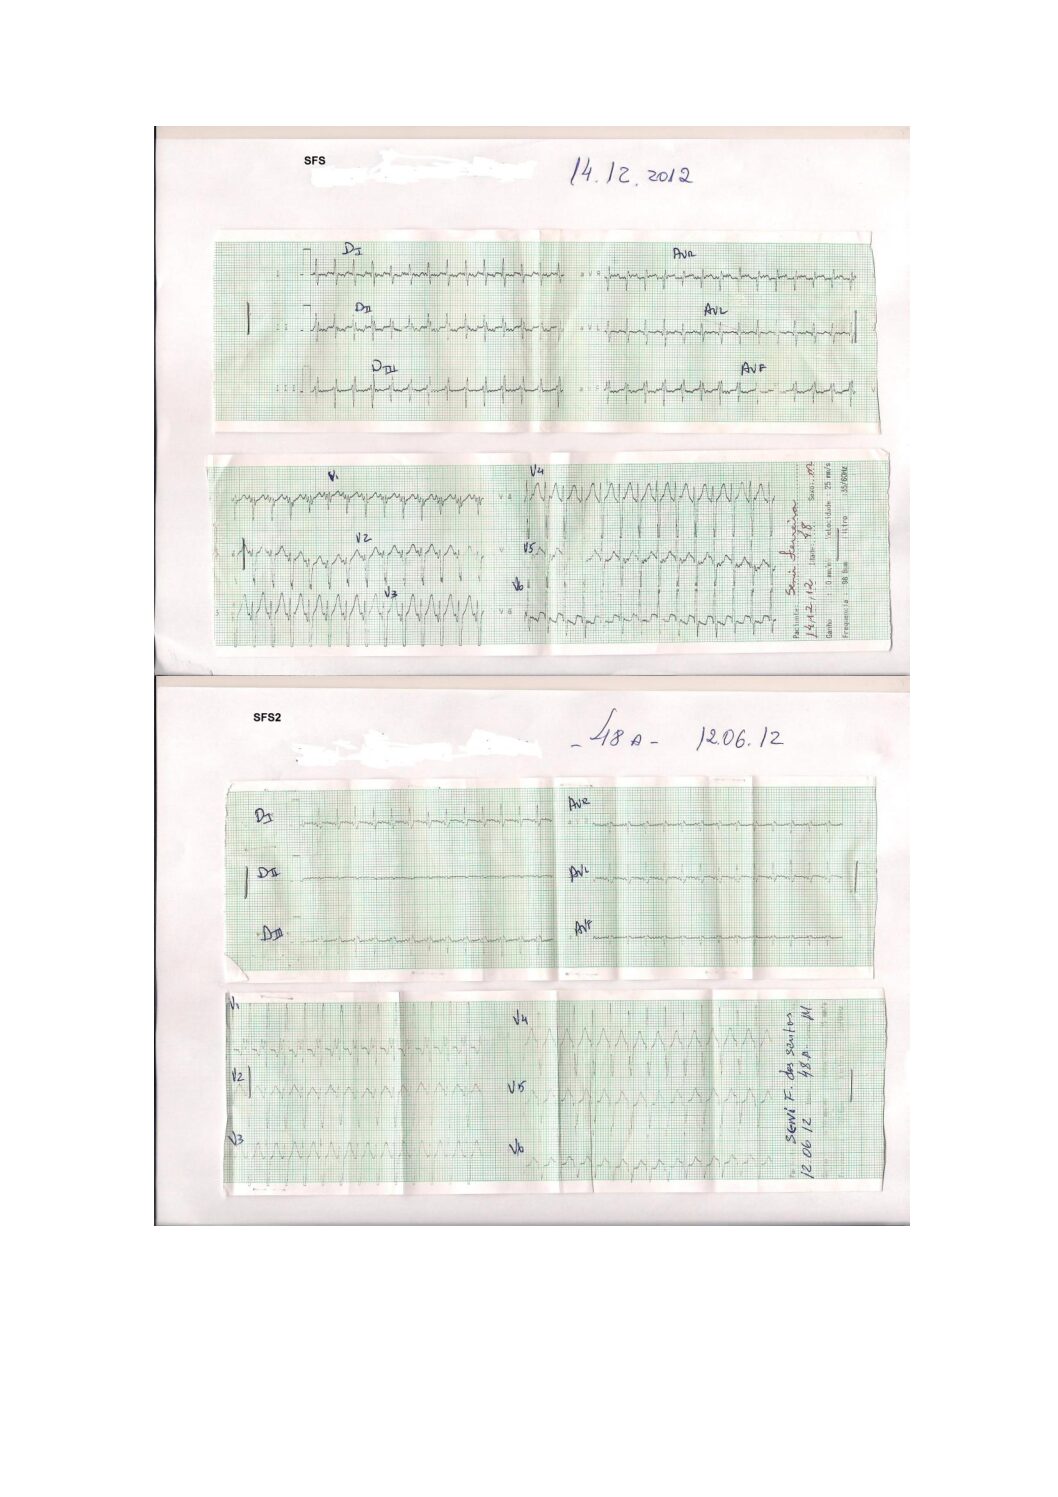 SFS
14.12.2012
DI
AVR
DII
AVL
DIII
AVF
V1
V4
V2
V5
V3
V6
Paciente:
14.12.12 Idade: 48 Sexo: M
Ganho : 10 mm/mV Velocidade : 25 mm/s
Frequencia : 98 Bpm Filtro : 35/60Hz
SFS2
- 48 A - 12.06.12
DI
AVR
DII
AVL
DIII
AVF
V1
V4
V2
V5
V3
V6
SENI F. dos santos
12 06 12 48 A. M